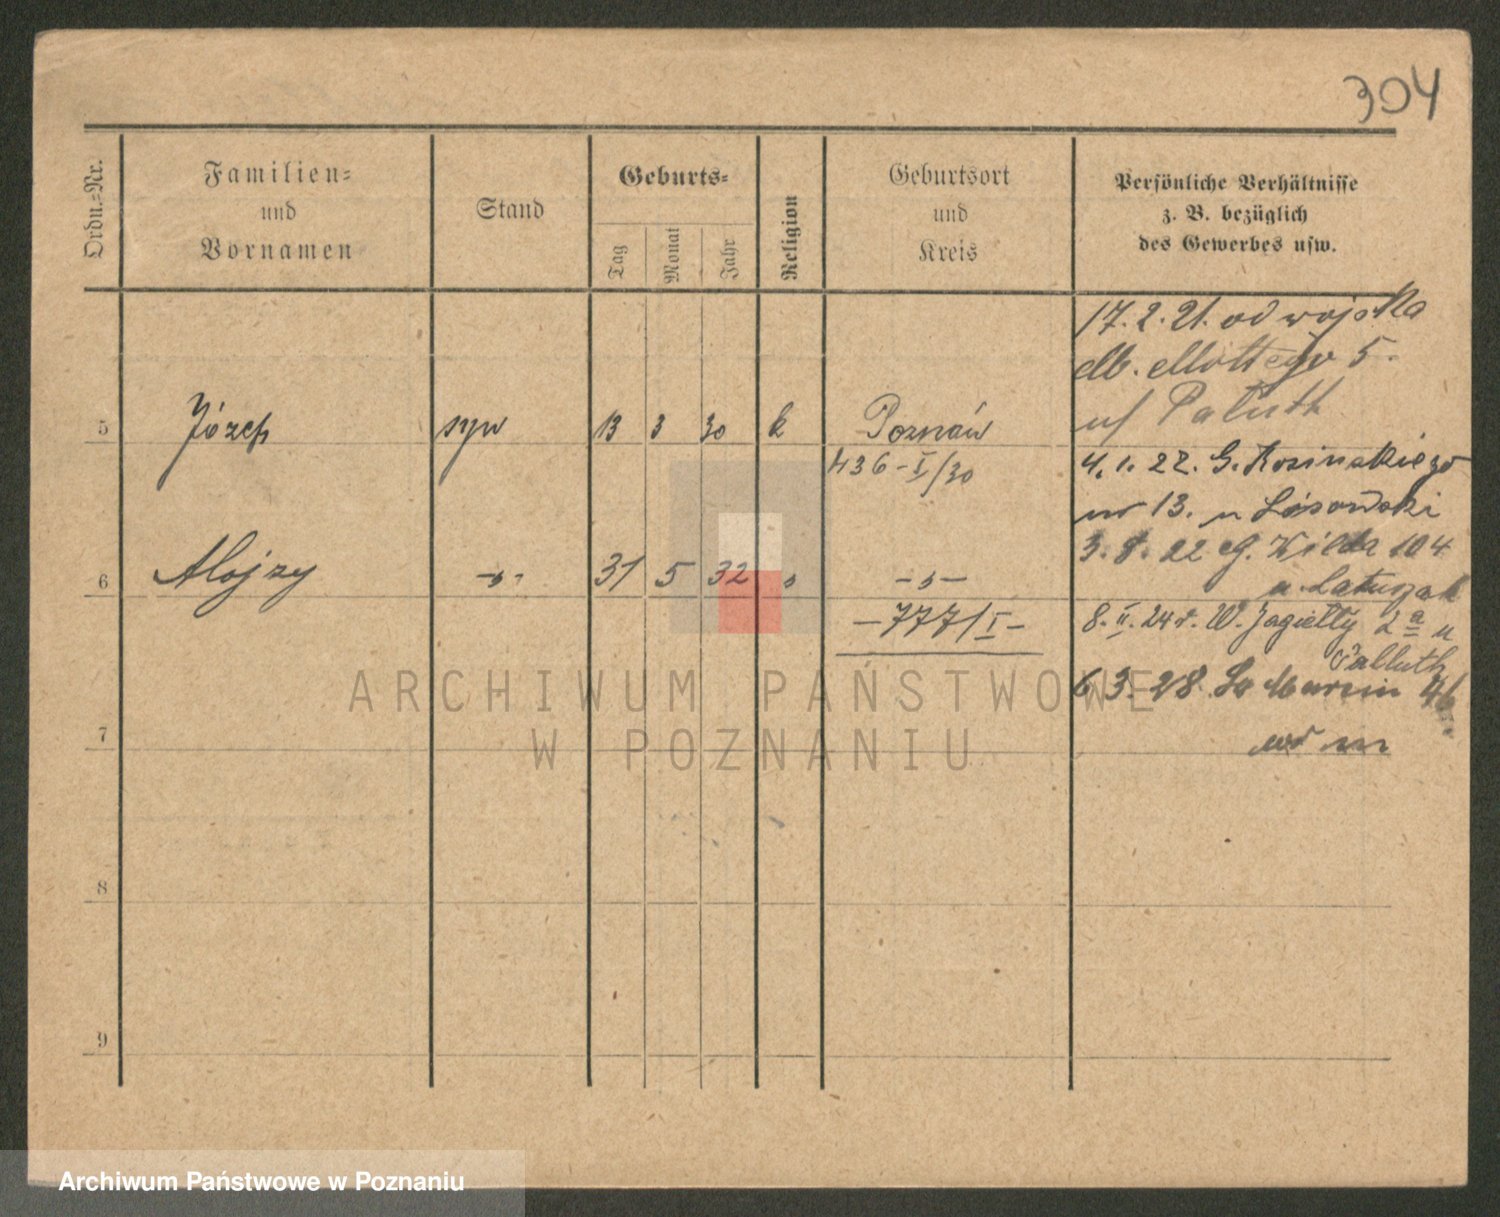 304
Ordn.-Nr.
Familien-
und
Vornamen
Stand
Geburts-
Tag
Monat
Jahr
Religion
Geburtsort
und
Kreis
Persönliche Verhältnisse
z. B. bezüglich
des Gewerbes usw.
17. 2. 21. od wojska
Mottego 5.
u/ Paluth
5 Józef syn 13 3 30 k Poznań
436-I/30
4. 1. 22. G. Kosinskiego
13. u Lisowski
3. 8. 22 G. Wilda 104
6 Alojzy -„- 31 5 32 „ -„-
u Latuszak
-777/I-
8. II. 24 r. W. Jagiełły 2 a u
Palluth
6 3. 28. Św Marcin 46
7
8
9
ARCHIWUM PAŃSTWOWE
W POZNANIU
Archiwum Państwowe w Poznaniu